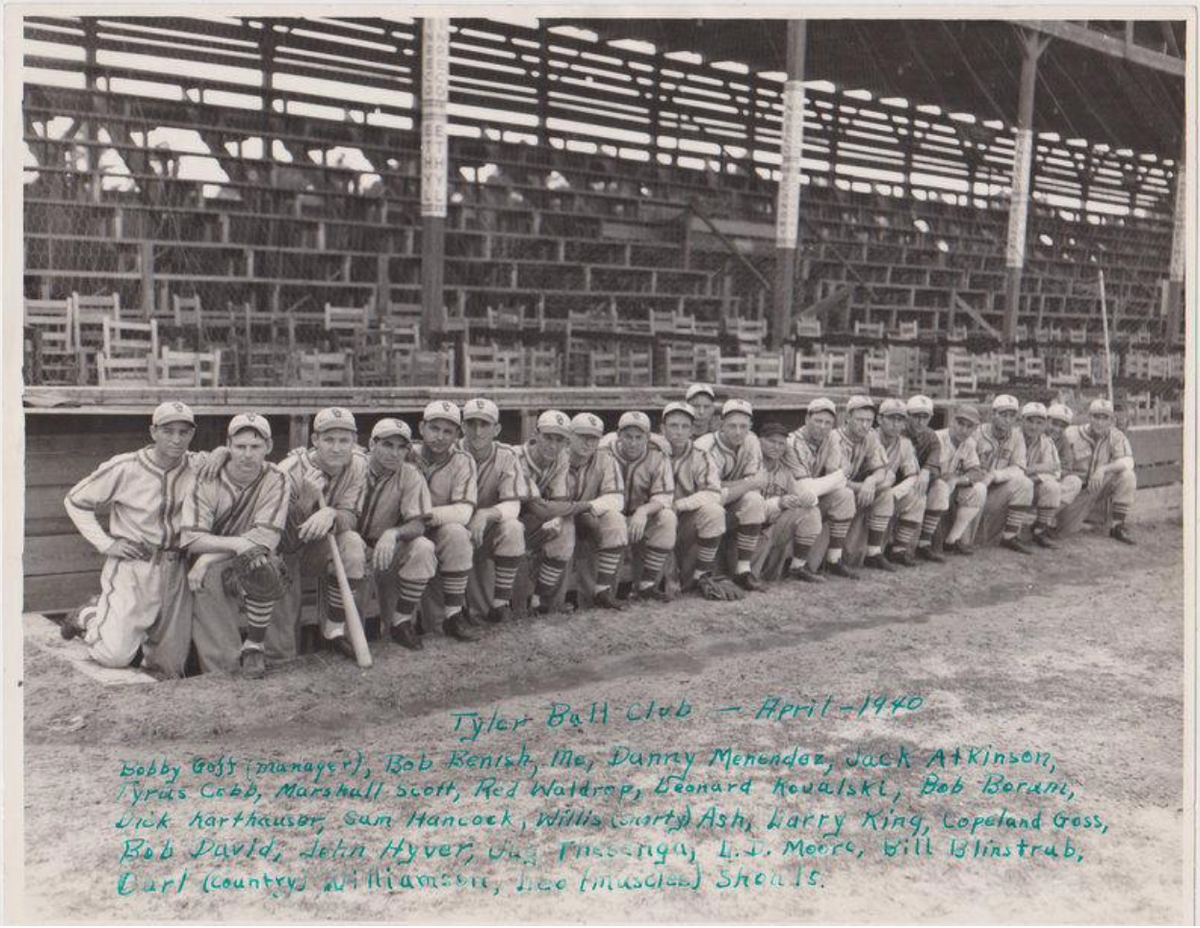 Tyler Ball Club - April - 1940
Bobby Goff (manager), Bob Benish, Me, Danny Menendez, Jack Atkinson,
Tyrus Cobb, Marshall Scott, Red Waldrop, Leonard Kovalski, Bob Borani,
Dick Karthauser, Sam Hancock, Willis (Shorty) Ash, Larry King, Copeland Goss,
Bob David, John Hyver, L.D. Moore, Bill Blinstrub,
Carl (Country) Williamson, Leo (Muscles) Shoals.